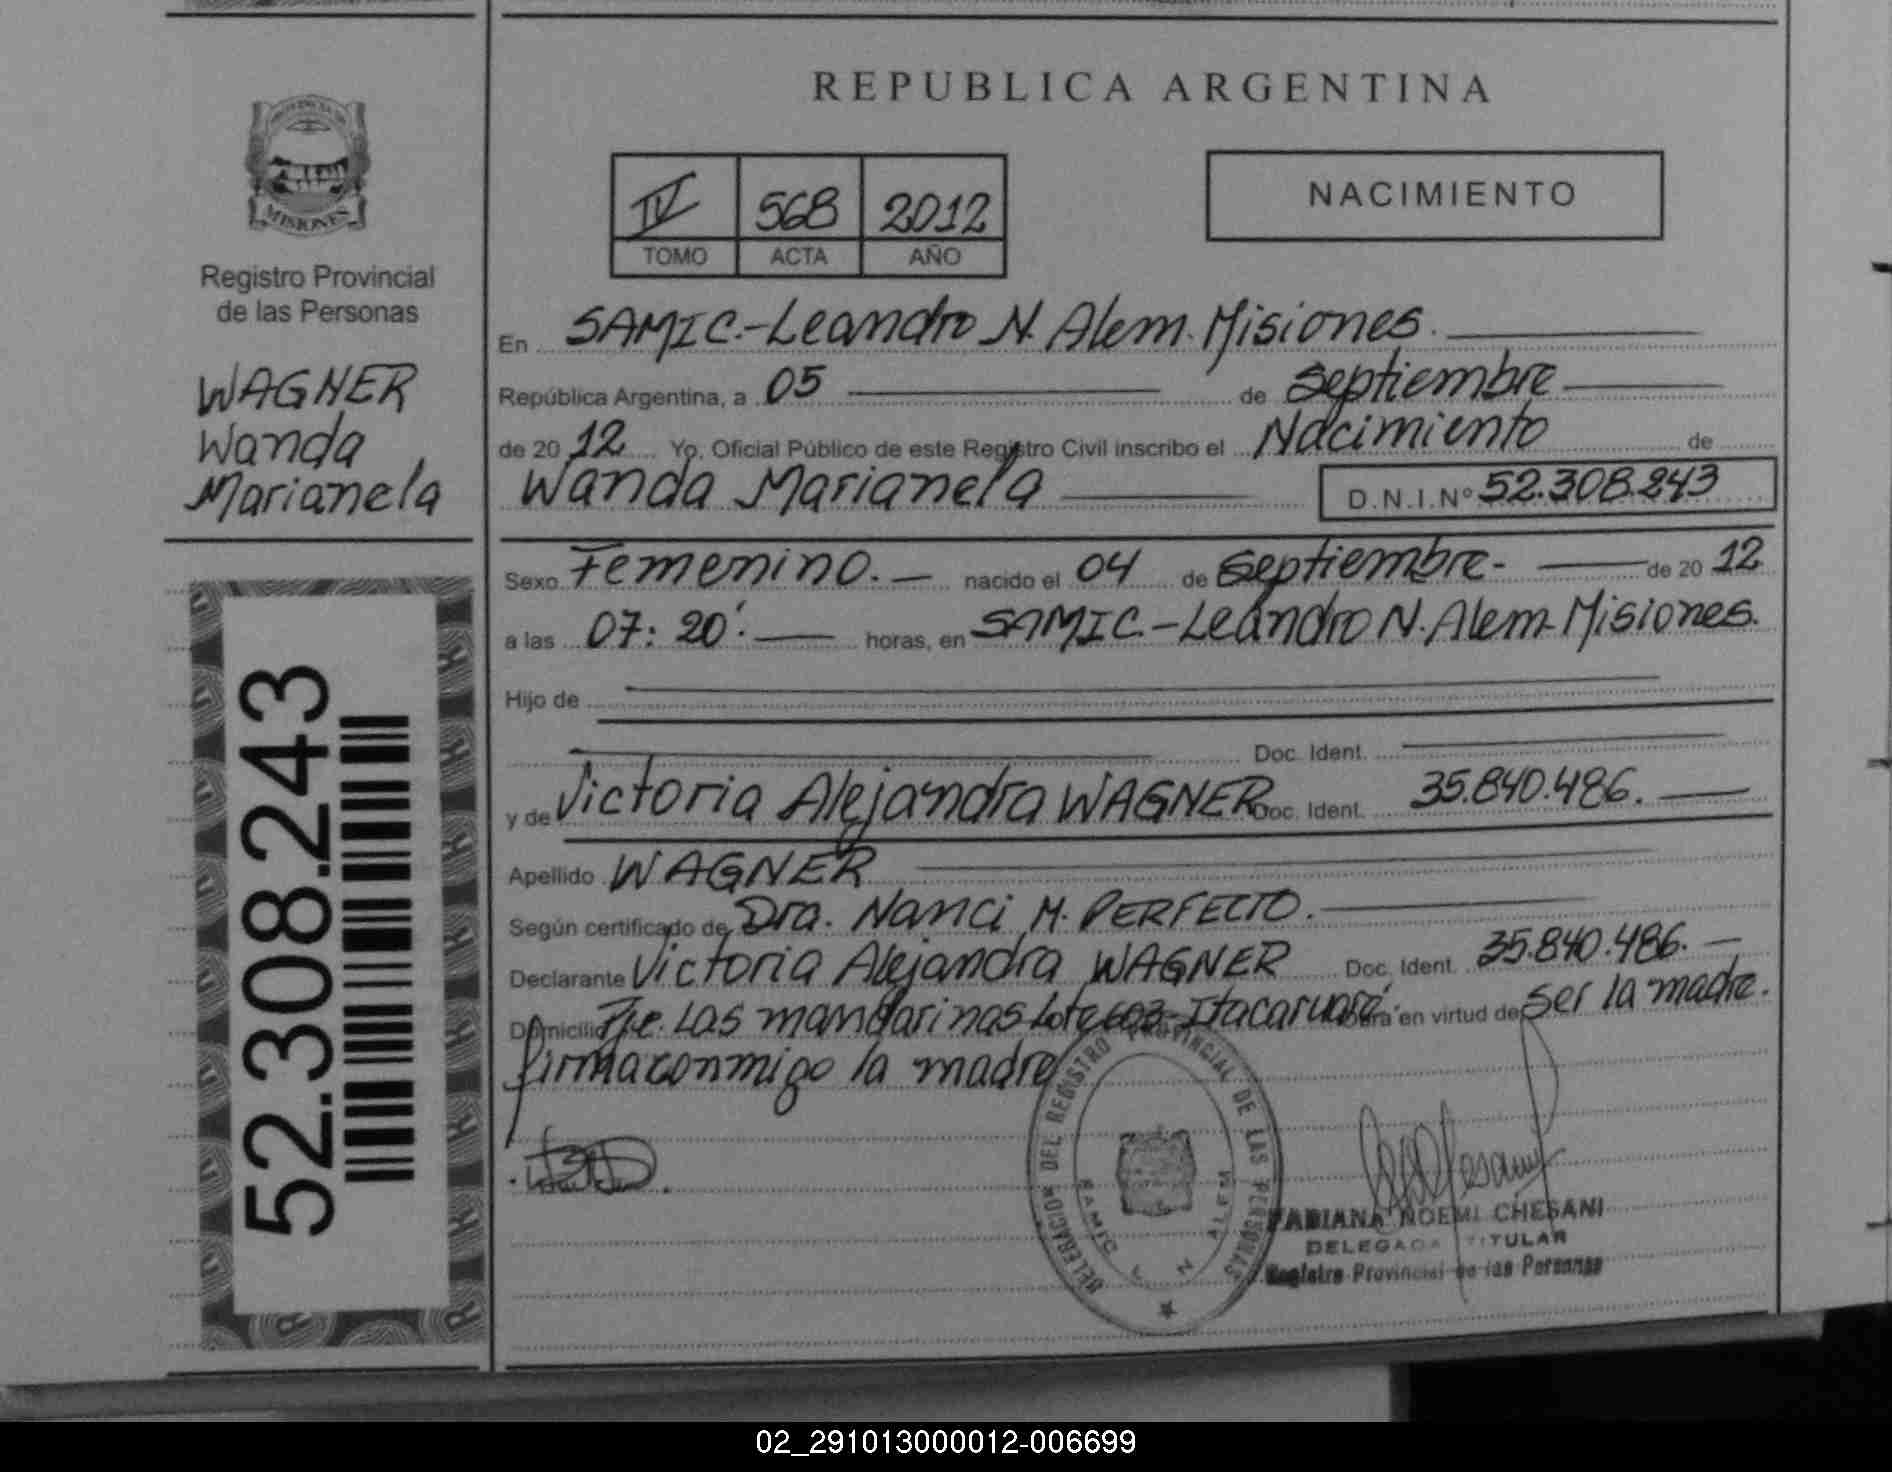 REPUBLICA ARGENTINA
PROVINCIA DE
MISIONES
Registro Provincial
de las Personas
WAGNER
Wanda
Marianela
52.308.243
IV 568 2012
TOMO ACTA AÑO
NACIMIENTO
En SAMIC.-Leandro N. Alem. Misiones.
República Argentina, a 05 de Septiembre
de 20 12 Yo, Oficial Público de este Registro Civil inscribo el Nacimiento de
Wanda Marianela D.N.I.Nº 52.308.243
Sexo Femenino. nacido el 04 de Septiembre. de 20 12
a las 07:20'. horas, en SAMIC.-Leandro N. Alem-Misiones.
Hijo de
Doc. Ident.
y de Victoria Alejandra WAGNER Doc. Ident. 35.840.486.
Apellido WAGNER
Según certificado de Dra. Nanci M. PERFECTO.
Declarante Victoria Alejandra WAGNER Doc. Ident. 35.840.486.
Domicilio Pje. Las mandarinas Lote 603-Itacaruaré. Obra en virtud de ser la madre.
firma conmigo la madre
DELEGACION DEL REGISTRO PROVINCIAL DE LAS PERSONAS
SAMIC N ALEM
FABIANA NOEMI CHESANI
DELEGADA TITULAR
Registro Provincial de las Personas
02_291013000012-006699